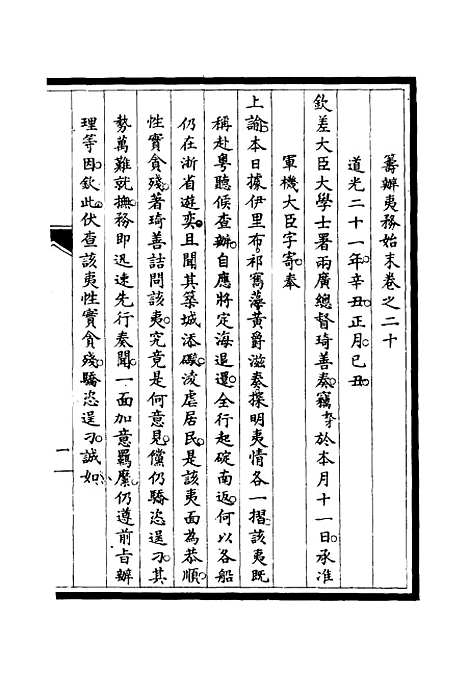 籌辦夷務始末卷之二十
道光二十一年辛丑正月己丑
欽差大臣大學士署兩廣總督琦善奏竊奴才於本月十一日承准
軍機大臣字寄奉
上諭本日據伊里布祁寯藻黃爵滋奏探明夷情各一摺該夷旣
稱赴粵聽候查辦自應將定海退還全行起碇南返何以各船
仍在浙省遊奕且聞其築城添礮淩虐居民是該夷面為恭順
性實貪殘著琦善詰問該夷究竟是何意見儻仍驕恣逞刁其
勢萬難就撫務即迅速先行奏聞一面加意羈縻仍遵前旨辦
理等因欽此伏查該夷性實貪殘驕恣逞刁誠如